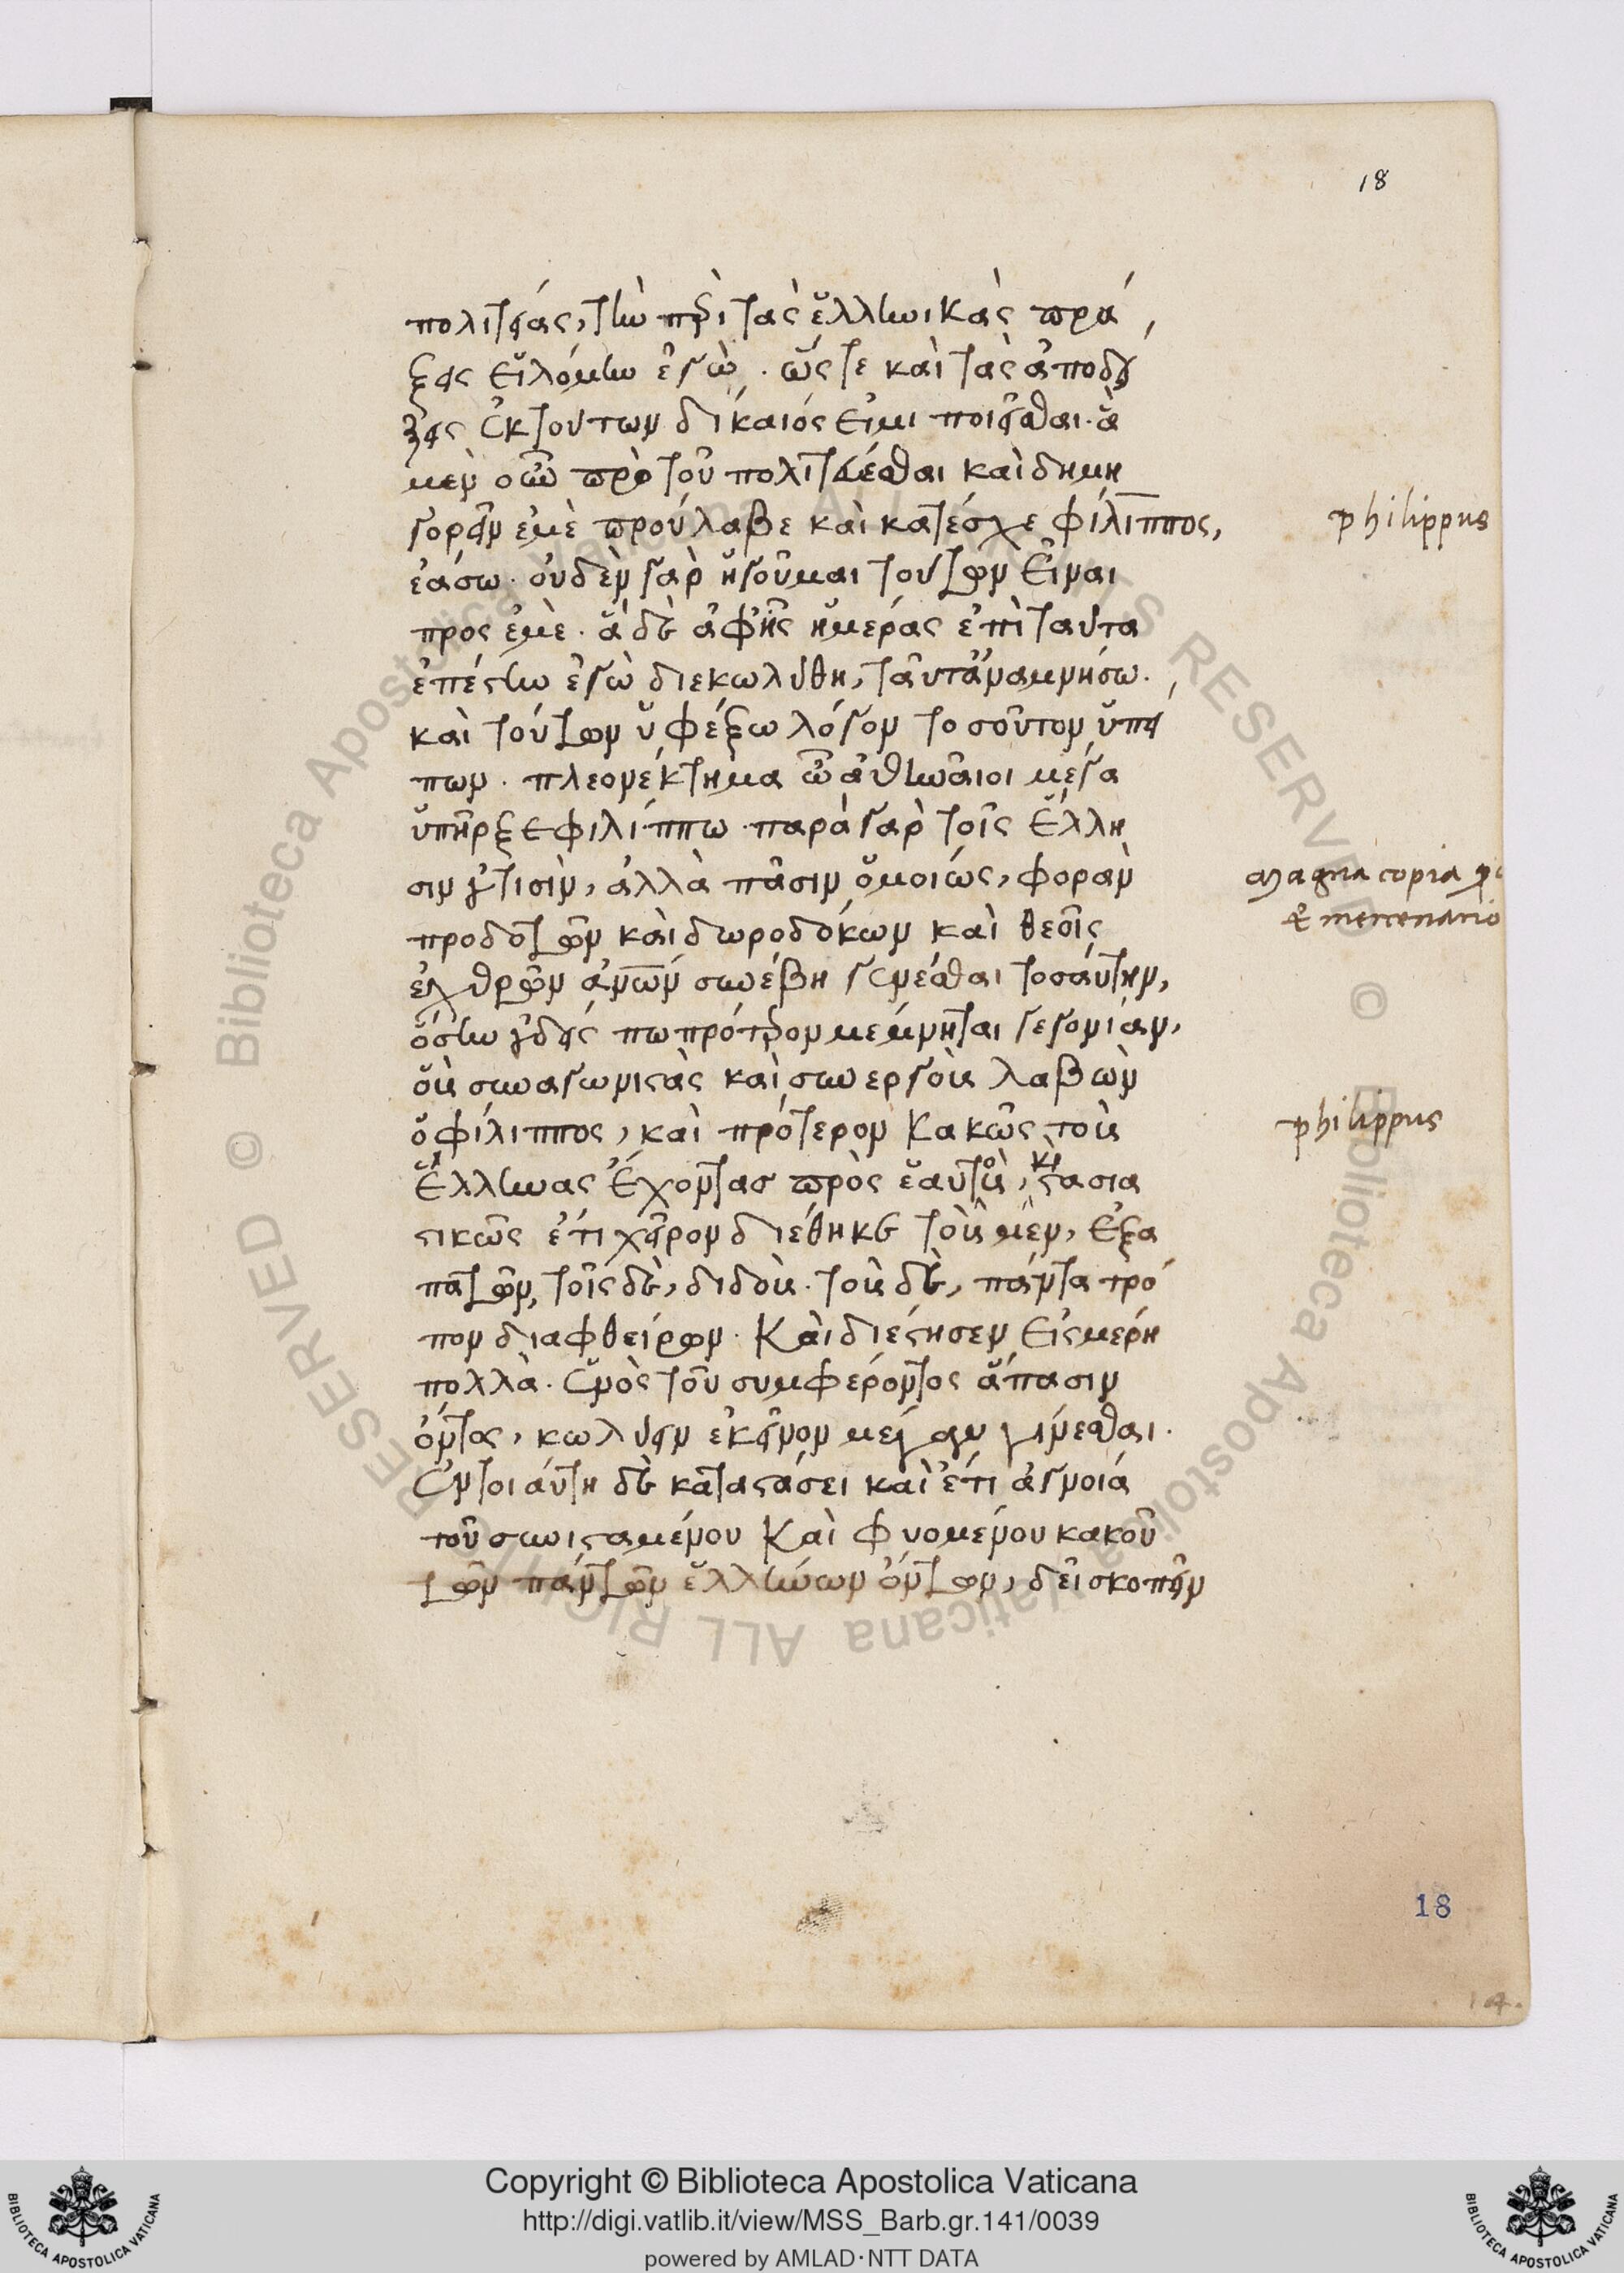 18
πολιτείας, τὴν περὶ τὰς ἑλληνικὰς πρά
ξεις εἱλόμην ἐγὼ. ὥστε καὶ τὰς ἀποδεί
ξεις ἐκ τούτων δίκαιός εἰμι ποιεῖσθαι. ἃ
μὲν οὖν πρὸ τοῦ πολιτεύεσθαι καὶ δημη
γορεῖν ἐμὲ προύλαβε καὶ κατέσχε φίλιππος,
philippus
ἐάσω. οὐδὲν γὰρ ἡγοῦμαι τούτων εἶναι
προς ἐμὲ. ἃ δὲ ἀφ' ἧς ἡμέρας ἐπὶ ταῦτα
ἐπέστην ἐγὼ διεκωλύθη, ταῦτα ἀναμνήσω.
καὶ τούτων ὑφέξω λόγον τοσοῦτον ὑπει
πων. πλεονέκτημα ὦ ἀθηναῖοι μέγα
ὑπῆρξε φιλίππω. παρὰ γὰρ τοῖς ἕλλη
σιν οὐ τισὶν, ἀλλὰ πᾶσιν ὁμοίως, φορὰν
magna copia
& mercenario
προδοτῶν καὶ δωροδόκων καὶ θεοῖς
ἐχθρῶν ἀνθρώπων συνέβη γενέσθαι τοσαύτην,
ὅσην οὐδείς πω πρότερον μέμνηται γεγονίαν,
οὓς συναγωνιστὰς καὶ συνεργοὺς λαβὼν
ὁ φίλιππος, καὶ πρότερον κακῶς τοὺς
philippus
ἕλληνας ἔχοντας πρὸς ἑαυτοὺς, καὶ στασια
στικῶς ἔτι χεῖρον διέθηκε τοὺς μὲν, ἐξα
πατῶν, τοῖς δὲ, διδοὺς. τοὺς δὲ, πάντα τρό
πον διαφθείρων. καὶ διέστησεν εἰς μέρη
πολλὰ. ἑνὸς τοῦ συμφέροντος ἅπασιν
ὄντος, κωλύειν ἐκεῖνον μέγαν γίνεσθαι.
ἐν τοιαύτη δὲ καταστάσει καὶ ἔτι ἀγνοιά
τοῦ συνισταμένου καὶ φυομένου κακοῦ
τῶν πάντων ἑλλήνων ὄντων, δεῖ σκοπεῖν
18
14.
Copyright © Biblioteca Apostolica Vaticana
http://digi.vatlib.it/view/MSS_Barb.gr.141/0039
powered by AMLAD·NTT DATA
BIBLIOTECA APOSTOLICA VATICANA
BIBLIOTECA APOSTOLICA VATICANA
© Biblioteca Apostolica Vaticana ALL RIGHTS RESERVED
© Biblioteca Apostolica Vaticana ALL RIGHTS RESERVED